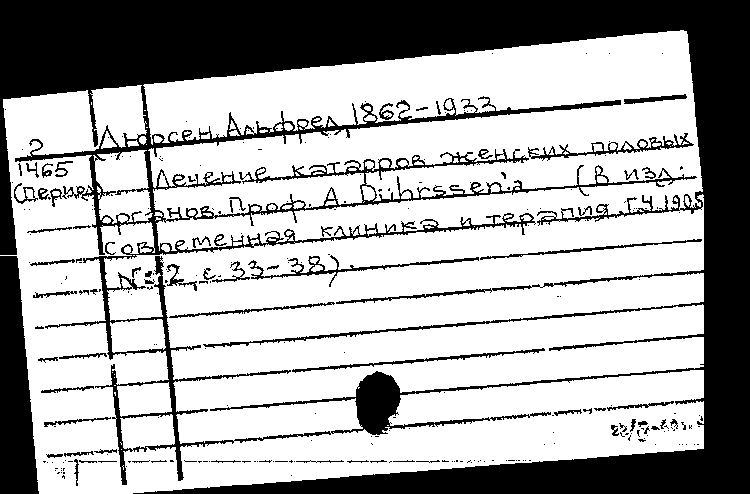 2
1465
(Период)
Дюрсен, Альфред, 1862-1933.
Лечение катарров женских половых
органов. Проф. A. Dührssen'a (В изд:
Современная клиника и терапия. Г.4. 1905
№ 2, с. 33-38).